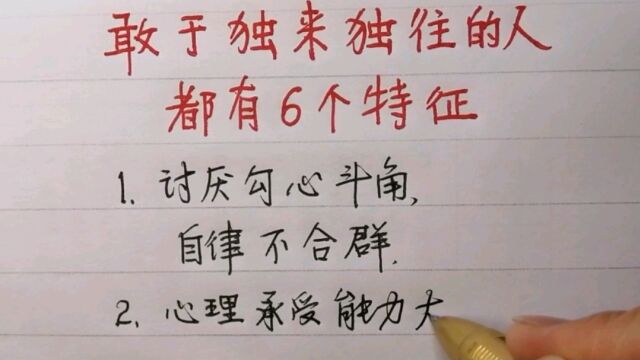 敢于独来独往的人
都有6个特征
1. 讨厌勾心斗角,
自律不合群.
2. 心理承受能力大